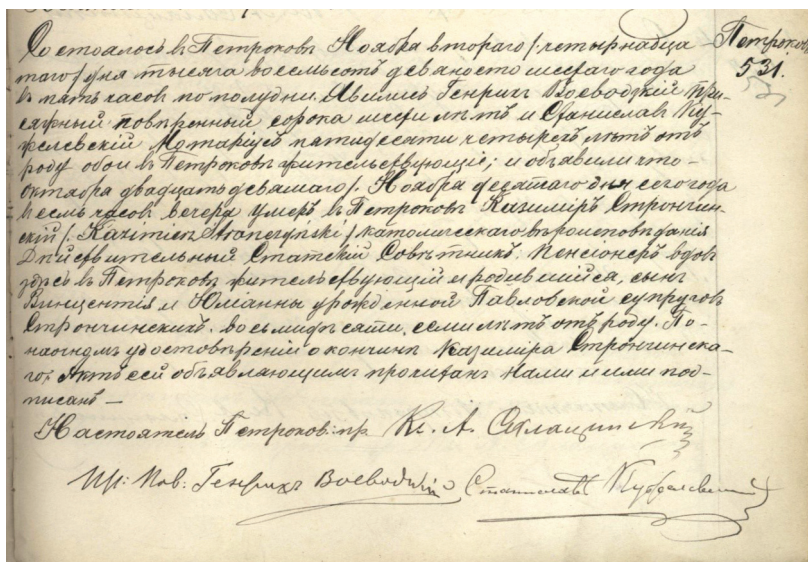 Петроковъ
531.
Состоялось въ Петроковѣ Ноября втораго /: четырнадца-
таго / дня тысяча восемьсотъ девяносто шестаго года
въ пять часовъ по полудни. Явились Генрихъ Воеводзкій При-
сяжный повѣренный сорока шести лѣтъ и Станиславъ
Нотаріусъ пятидесяти четырехъ лѣтъ отъ
роду обои въ Петроковѣ жительствующіе; и объявили что
октября двадцать девятаго /. Ноября десятаго дня сего года
въ семь часовъ вечера умеръ въ Петроковѣ Казиміръ Строичин-
скій /. Kazimierz Stronczyński / католическаго вѣроисповѣданія
Дѣйствительный Статскій Совѣтникъ. Пенсіонеръ вдов
здѣсь въ Петроковѣ жительствующій и родившійся, сынъ
Винцентія и Юліанны урожденной Павловской супруговъ
Строичинскихъ. восьмидѣсяти, семи лѣтъ отъ роду. По-
наочномъ удостовѣреніи о кончинѣ Казиміра Строичинска-
го. Актъ сей объявляющимъ прочитанъ Нами и ими под-
писанъ —
Настоятель Петроков: пр Кс. А.
Пр: Пов: Генрихъ Воеводзкій Станиславъ